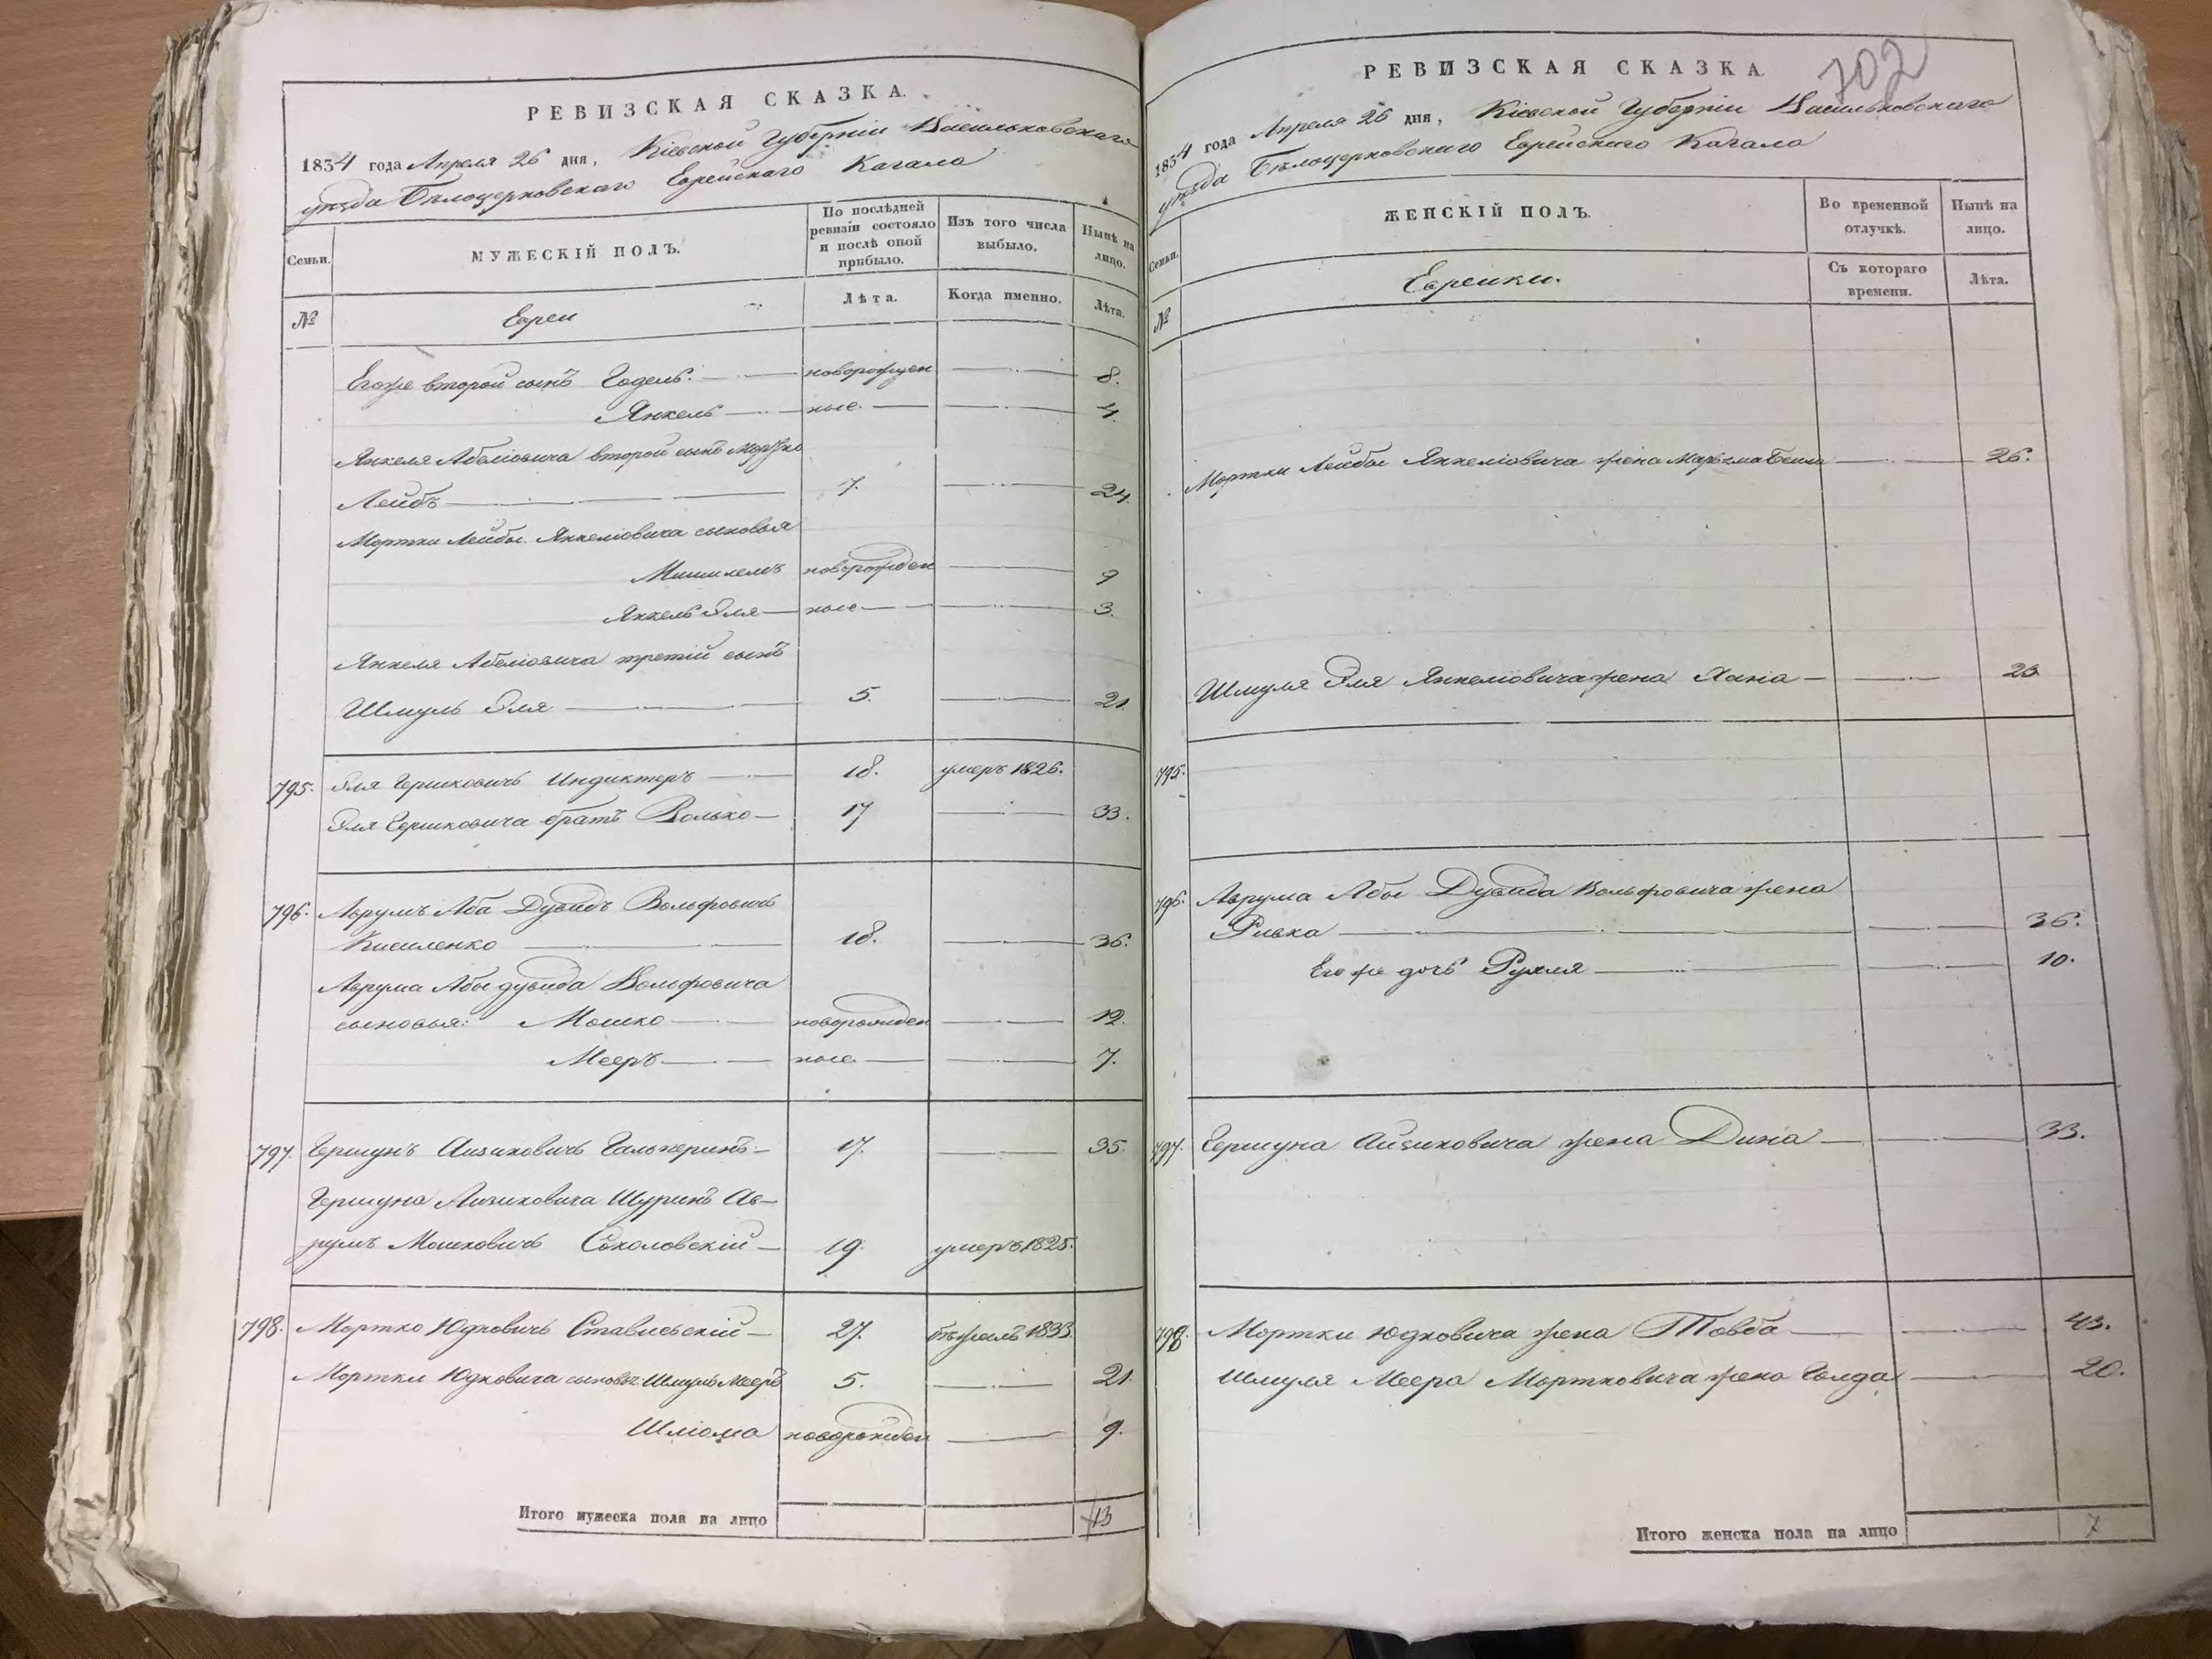 РЕВИЗСКАЯ СКАЗКА.
1834 года Апреля 26 дня, Кіевской Губерніи Васильковскаго
уѣзда Бѣлоцерковскаго Еврейскаго Кагала
Семьи.
МУЖЕСКІЙ ПОЛЪ.
По послѣдней ревизіи состояло и послѣ оной прибыло.
Изъ того числа выбыло.
Нынѣ на лицо.
№
Евреи
Лѣта.
Когда именно.
Лѣта.
Егоже второй сынъ Годель новорожден 8.
Янкель ные 4.
Янкеля Абеліовича второй сынъ Мортко
Лейбъ 7. 24.
Мортки Лейбы Янкеліовича сыновья
новорожден 9
Янкель Эля ные 3.
Янкеля Абеліовича третій сынъ
Шмуль Эля 5. 21.
795. Эля Гершковичъ Индиктеръ 18. умеръ 1826.
Эля Гершковича братъ Волько 17 33.
796. Аврумъ Аба Дувидъ Вольфовичъ
Кисиленко 18. 36.
Аврума Абы дувида Вольфовича
сыновья: Мошко новорожден 12.
Мееръ ные 7.
797. Гершунъ Айзиковичъ Гальперинъ 17. 35.
Гершуна Айзиковича Шуринъ Ав-
румъ Мошковичъ Соколовскій 19. умеръ 1825.
798. Мортко Юдковичъ Ставиській 27. бѣжалъ 1833
Мортки Юдковича сыновья Шмуль Мееръ 5. 21.
Шліома новорожден 9.
Итого мужеска пола на лицо 13
702
РЕВИЗСКАЯ СКАЗКА.
1834 года Апреля 26 дня, Кіевской Губерніи Васильковскаго
уѣзда Бѣлоцерковскаго Еврейскаго Кагала
Семьи.
ЖЕНСКІЙ ПОЛЪ.
Во временной отлучкѣ.
Нынѣ на лицо.
№
Еврейки.
Съ котораго времени.
Лѣта.
Мортки Лейбы Янкеліовича жена Марьяма Бейла 26.
Шмуля Эля Янкеліовича жена Хана 20
795.
796. Аврума Абы Дувида Вольфовича жена
Ривка 36.
Его же дочь Рухля 10.
797. Гершуна Айзиковича жена Дина 33.
798. Мортки Юдковича жена Товба 43.
Шмуля Меера Мортковича жена Голда 20.
Итого женска пола на лицо 7